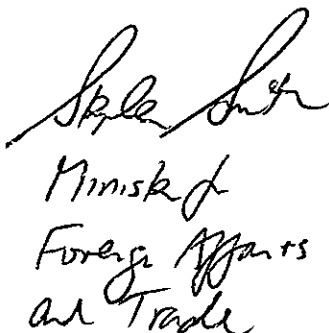 Stephen Smith
Minister for
Foreign Affairs
and Trade